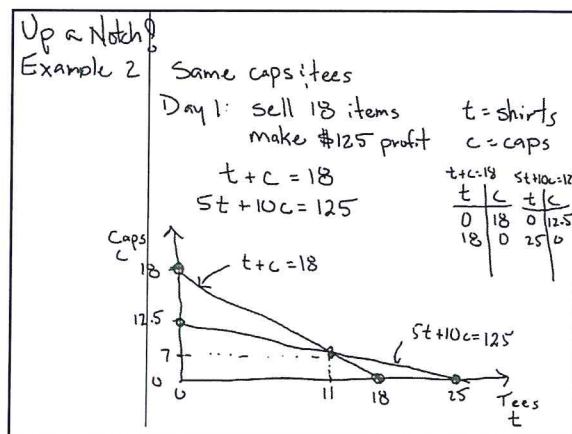 Up a Notch!
Example 2
Same caps & tees
Day 1: sell 18 items
make $125 profit
t = shirts
c = caps
t + c = 18
5t + 10c = 125
t+c=18 5t+10c=12
t c t c
0 18 0 12.5
18 0 25 0
Caps
c
18
t + c = 18
12.5
5t + 10c = 125
7
0
0 11 18 25
Tees
t